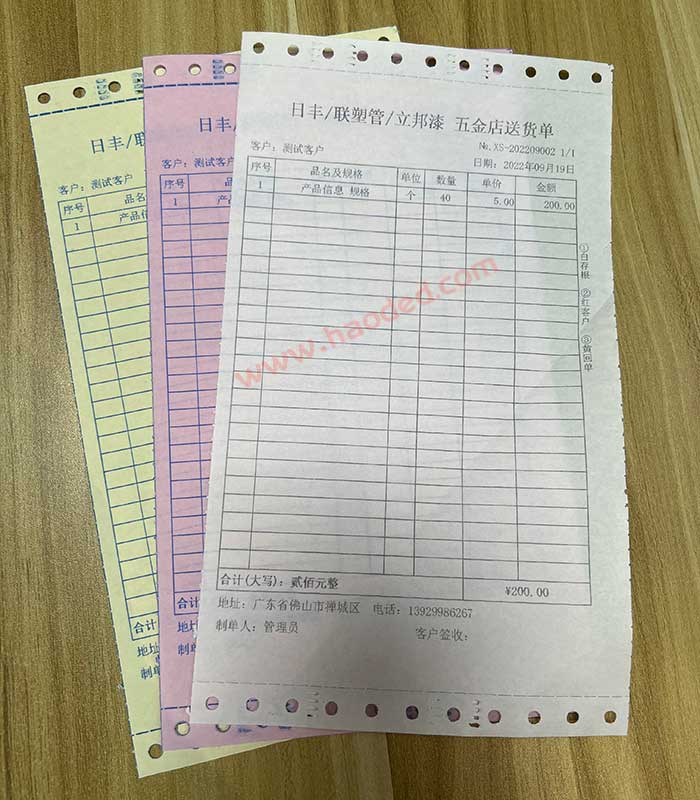 日丰/
客户: 测试客户
序号 品名
1 产品信
合计
地址
制单
日丰/联
客户: 测试客户
序号
1 产
合计
地址
制单
日丰/联塑管/立邦漆 五金店送货单
№.XS-202209002 1/1
客户: 测试客户 日期: 2022年09月19日
序号 品名及规格 单位 数量 单价 金额
1 产品信息 规格 个 40 5.00 200.00
①白存根 ②红客户 ③黄回单
www.haoded.com
合计(大写): 贰佰元整 ¥200.00
地址: 广东省佛山市禅城区 电话: 13929986267
制单人: 管理员 客户签收: